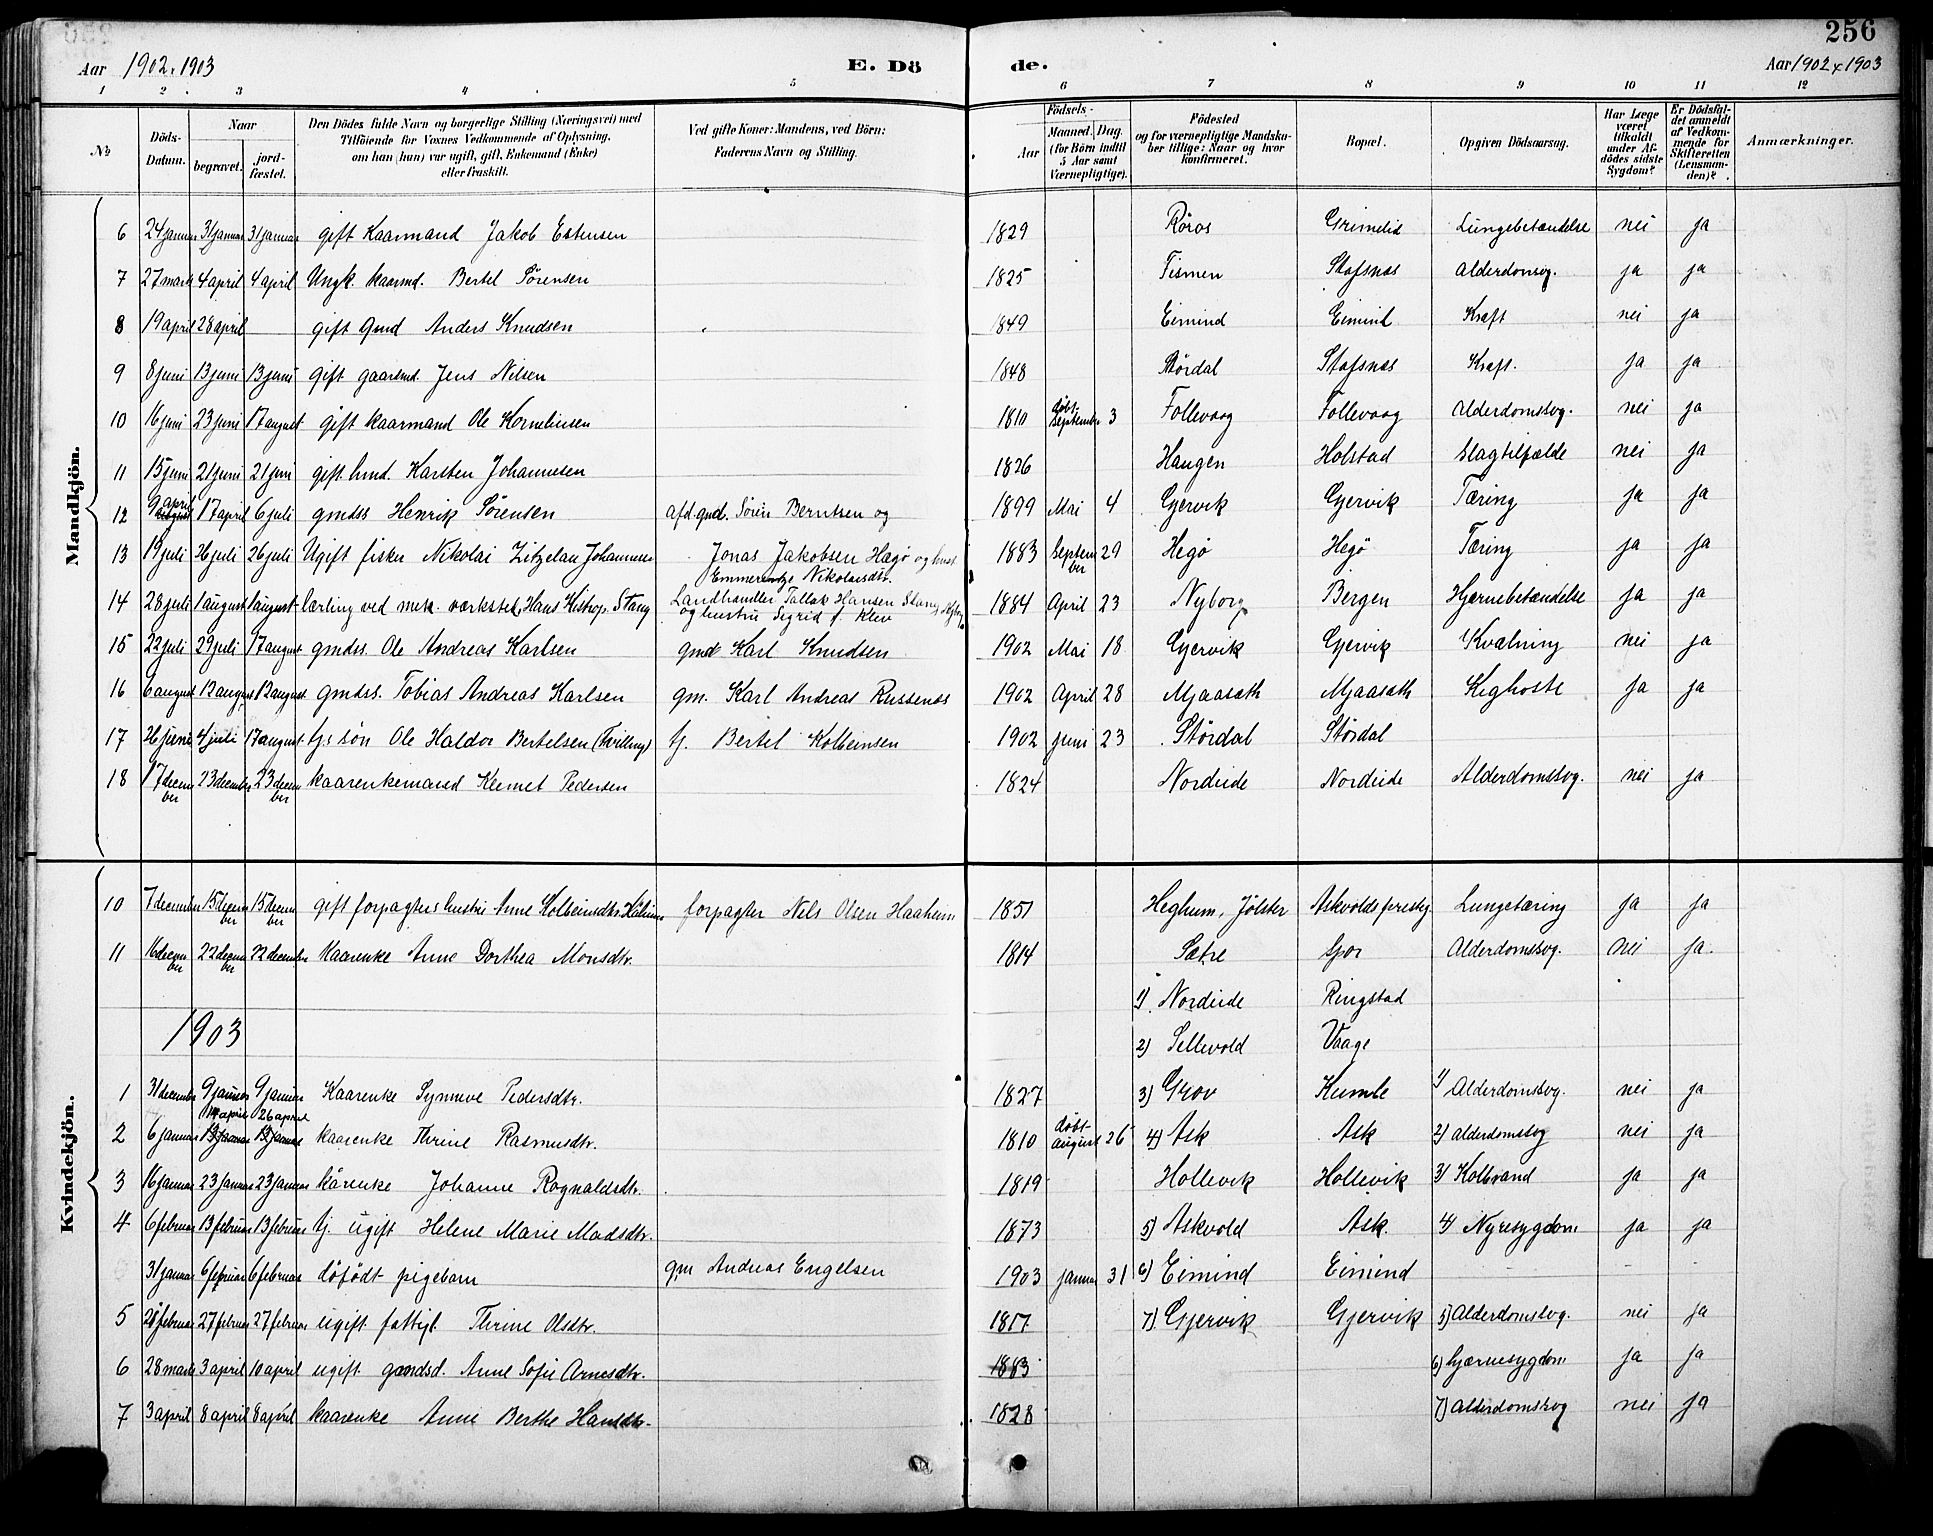 256
Aar 1902. 1903
E. Dö
de.
Aar 1902 & 1903
1 2 3 4 5 6 7 8 9 10 11 12
№
Döds-Datum.
Naar
begravet.
jord-fæstet.
Den Dödes fulde Navn og borgerlige Stilling (Næringsvei) med
Tilföiende for Voxnes Vedkommende af Oplysning,
om han (hun) var ugift, gift, Enkemand (Enke)
eller fraskilt.
Ved gifte Koner: Mandens, ved Börn:
Faderens Navn og Stilling.
Födsels-
Aar
Maaned. Dag.
(for Börn indtil
5 Aar samt
Værnepligtige).
Födested
og for værnepligtige Mandska-
ber tillige: Naar og hvor
konfirmeret.
Bopæl.
Opgiven Dödsaarsag.
Har Læge
været
tilkaldt
under Af-
dödes sidste
Sygdom?
Er Dödsfal-
det anmeldt
af Vedkom-
mende for
Skifteretten
(Lensman-
den)?
Anmærkninger.
Mandkjön.
6 24 januar 31 januar 31 januar gift Kaarmand Jakob Estensen 1829 Röros Grimelid Lungebetændelse nei ja
7 27 marts 4 april 4 april Ungk. kaarmd. Bertel Sörensen 1825 Tismen Stafsnes Alderdomsvg. ja ja
8 19 april 28 april gift gmd Anders Knudsen 1849 Eimind Eimind Kræft nei ja
9 8 juni 13 juni 13 juni gift gaardmd. Jens Nilsen 1848 Stördal Stafsnes Kræft. ja ja
10 16 juni 23 juni 17 august gift kaarmand Ole Korneliusen 1810 döbt September 3 Follevaag Follevaag Alderdomssvg. nei ja
11 15 juni 21 juni 21 juni gift hmd. Karsten Johannesen 1826 Haugen Holstad Slagtilfælde nei ja
12 9 april 17 april 6 juli gmdss Henrik Sörensen afd. gmd. Sören Berntsen og 1899 Mai 4 Gjervik Gjervik Tæring ja ja
13 19 juli 26 juli 26 juli Ugift fisker Nikolai Zitzelau Johannesen Jonas Jakobsen Hegö og hust. Emmerentze Nikolaisdtr. 1883 September 29 Hegö Hegö Tæring ja ja
14 28 juli 1 august 1 august lærling ved mek. værksted, Hans Kistrop Stang Landhandler Tallak Hansen Stang og hustru Sigrid f. Klev 1884 April 23 Nyborg Bergen Hjernebetændelse ja ja
15 22 juli 29 juli 17 august gmdss. Ole Andreas Karlsen gmd Karl Knudsen 1902 Mai 18 Gjervik Gjervik Kvælning nei ja
16 6 august 13 august 13 august gmdss. Tobias Andreas Karlsen gm. Karl Andreas Russenes 1902 April 28 Mjaasæth Mjaasæth Kighoste ja ja
17 26 juni 4 juli 17 august tjs sön Ole Haldor Bertelsen (Tvilling) tj. Bertel Kolbeinsen 1902 juni 23 Stördal Stördal
18 17 december 23 december 23 december kaarenkemand Klemet Pedersen 1824 Nordeide Nordeide Alderdomssvg. nei ja
Kvindekjön.
10 7 december 15 december 15 december gift forpagters hustru Anne Kolbeinsdtr. forpagter Nels Olsen Haaheim 1851 Heghum, Jölster Askvolds prestg. Lungetæring ja ja
11 16 december 22 december 22 december Kaarenke Anne Dorthea Monsdtr. 1814 Sætre Alderdomssvg. nei ja
1) Nordeide Ringstad
1903
2) Sellevold Vaage
1 31 december 9 januar 9 januar Kaarenke Synneve Pedersdtr. 1827 3) Grov Kumle 1) Alderdomssvg. nei ja
14 april 26 april
2 6 januar 13 januar 13 januar kaarenke Thrine Rasmusdtr. 1810 döbt august 26 4) Ask Ask 2) Alderdomssvg nei ja
3 16 januar 23 januar 23 januar kårenke Johanne Ragnaldsdtr. 1819 Hollevik Hollevik 3) Kolbrand ja ja
4 6 februar 13 februar 13 februar tj. ugift Helene Marie Madsdtr. 1873 5) Askvold Ask. 4) Nyresygdom ja ja
31 januar 6 februar 6 februar döfödt pigebarn gm Andreas Engelsen 1903 januar 31 6) Eimind Eimind
5 20 februar 27 februar 27 februar ugift fattigl. Thrine Olsdtr. 1817 7) Gjervik Gjervik 5) Alderdomssvg. nei ja
6 28 marts 3 april 10 april ugift gmdsd. Anne Sofie Arnesdtr. 1883 6) hjernesygdom ja ja
7 3 april 8 april 8 april kaarenke Anne Berthe Hansdtr. 1828 7) Alderdomssvg nei ja